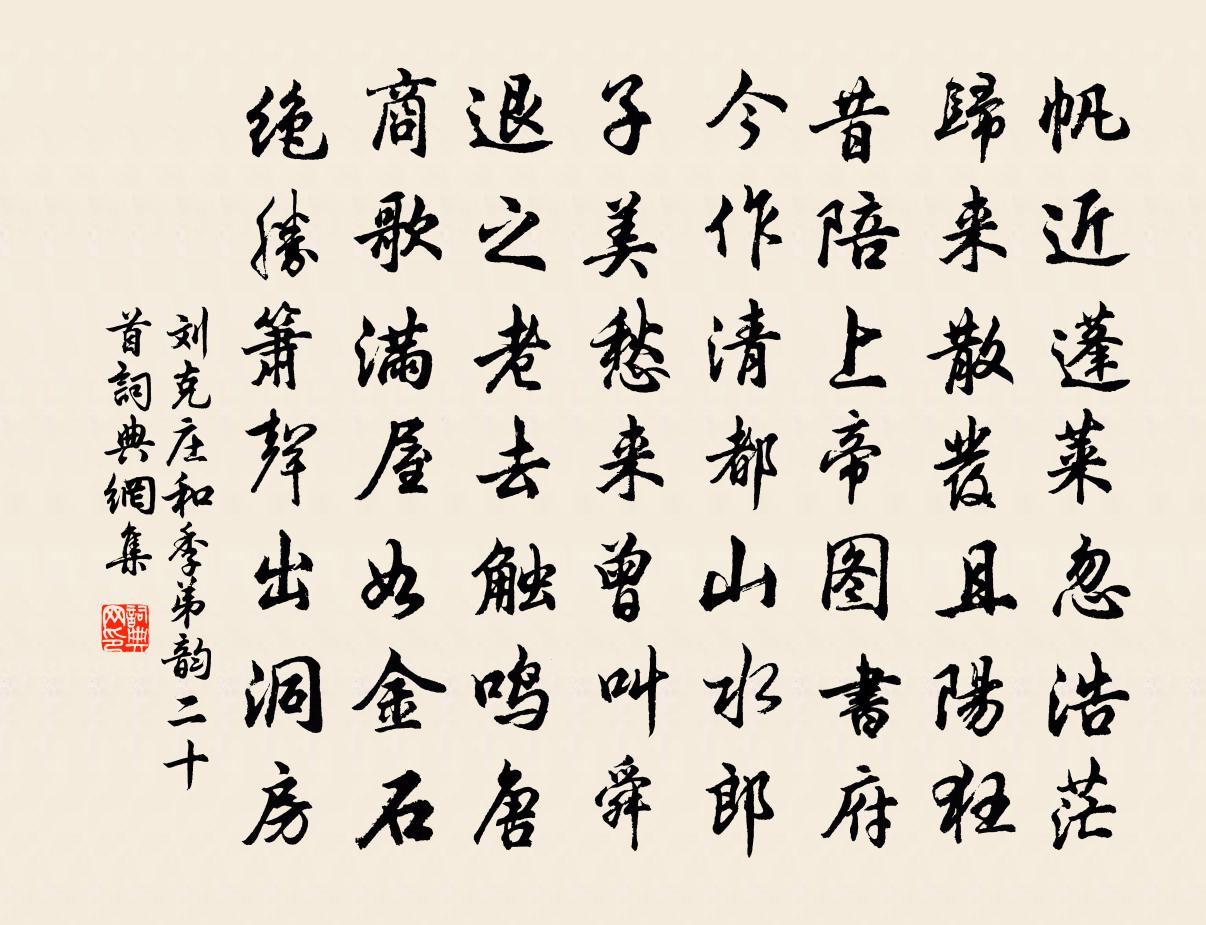 帆近蓬莱忽浩茫
歸来散發且陽狂
昔陪上帝图書府
今作清都山水郎
子美愁来曾叫舜
退之老去触鸣唐
商歌滿屋如金石
绝勝簫聲出洞房
刘克庄和季弟韵二十
首詞典網集
詞典网印